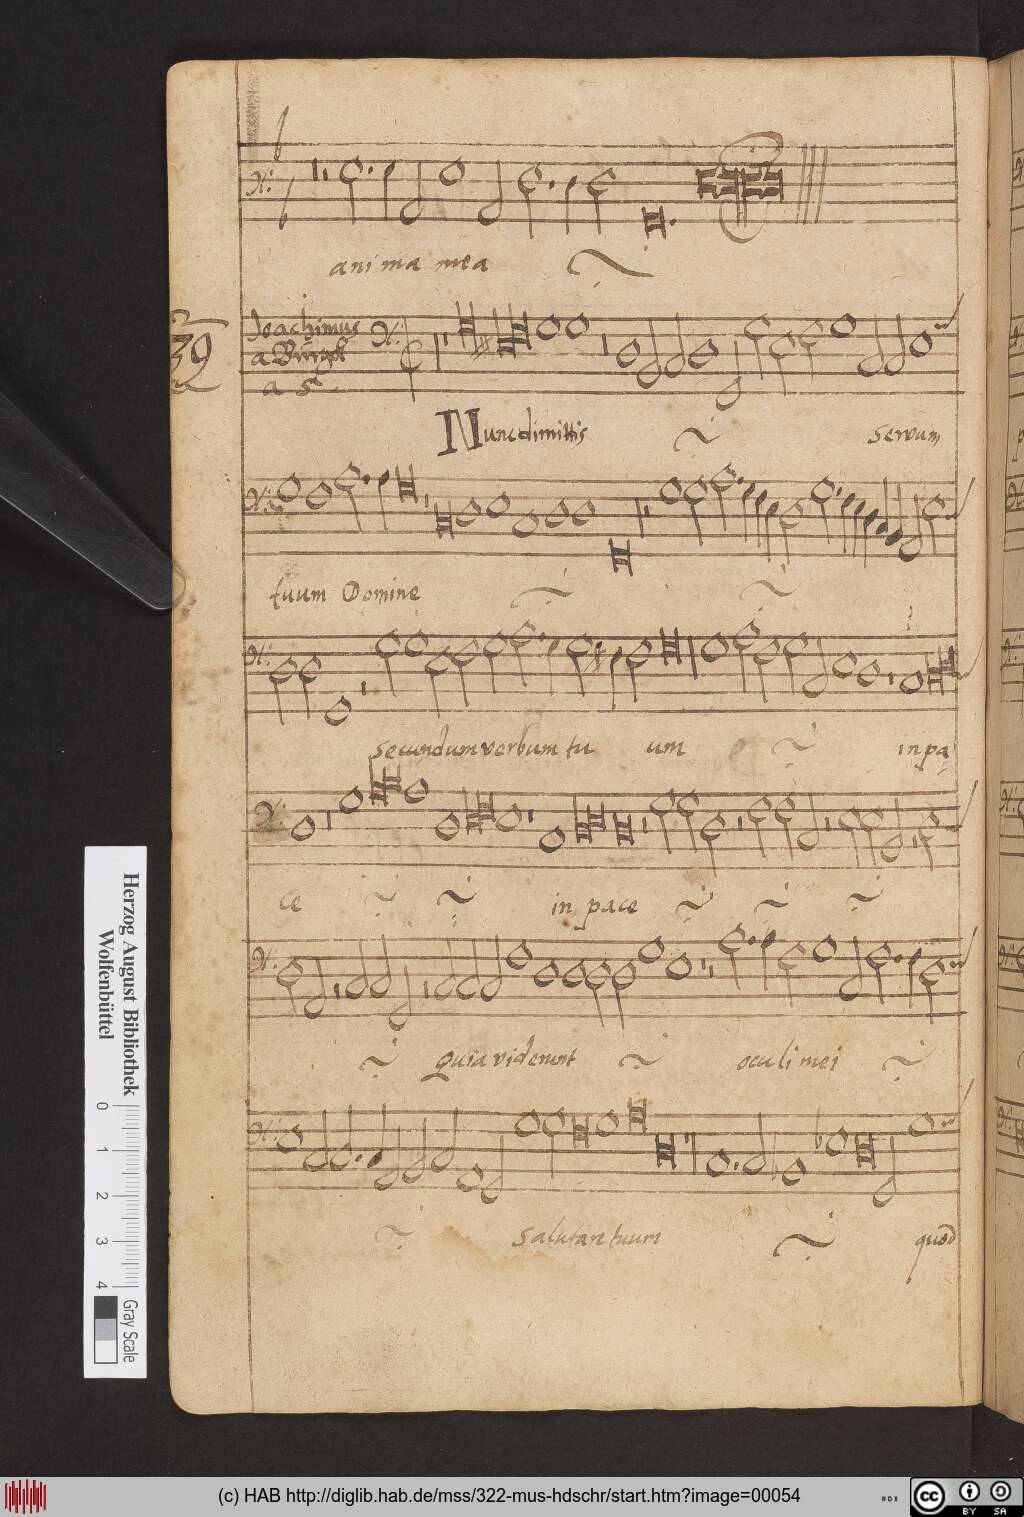 anima mea
39
Joachimus
a Burgk
a 5
Nunc dimittis servum
tuum Domine
secundum verbum tuum in pa
ce in pace
Quia viderunt oculi mei
salutare tuum quod
Herzog August Bibliothek
Wolfenbüttel
0 1 2 3 4
Gray Scale
(c) HAB http://diglib.hab.de/mss/322-mus-hdschr/start.htm?image=00054
cc
BY SA